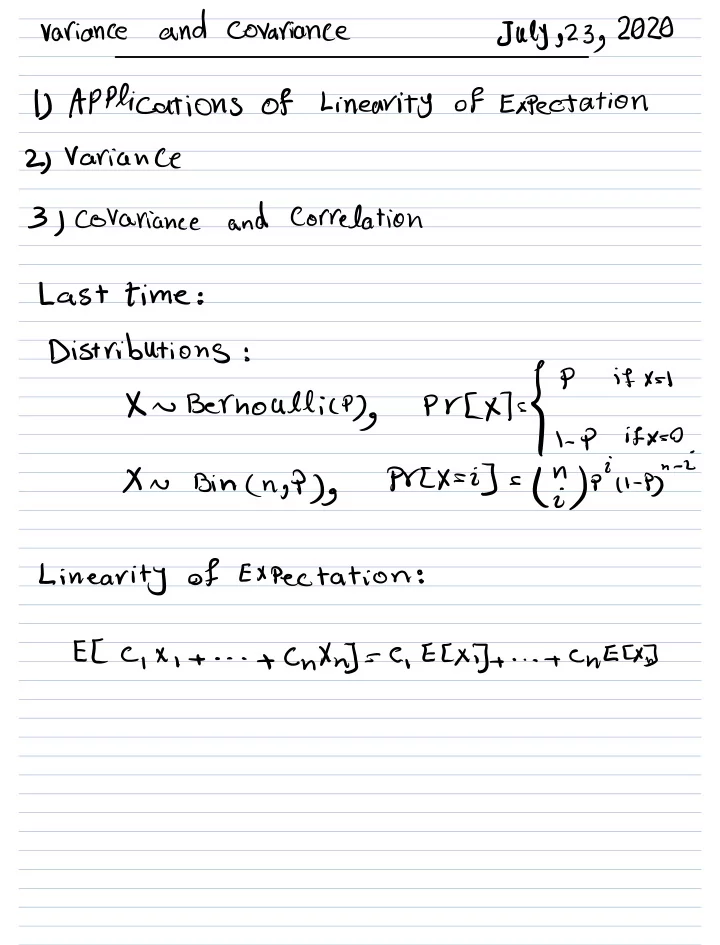 Variance and Covariance July, 23, 2020
1) Applications of Linearity of Expectation
2) Variance
3) Covariance and Correlation
Last time:
Distributions:
X ~ Bernoulli(P), Pr[X] = { P if x=1
1-P if x=0
X ~ Bin(n,P), Pr[X=i] = (n i) P^i (1-P)^n-i
Linearity of Expectation:
E[ C₁X₁ + ... + CₙXₙ] = C₁ E[X₁] + ... + CₙE[Xₙ]